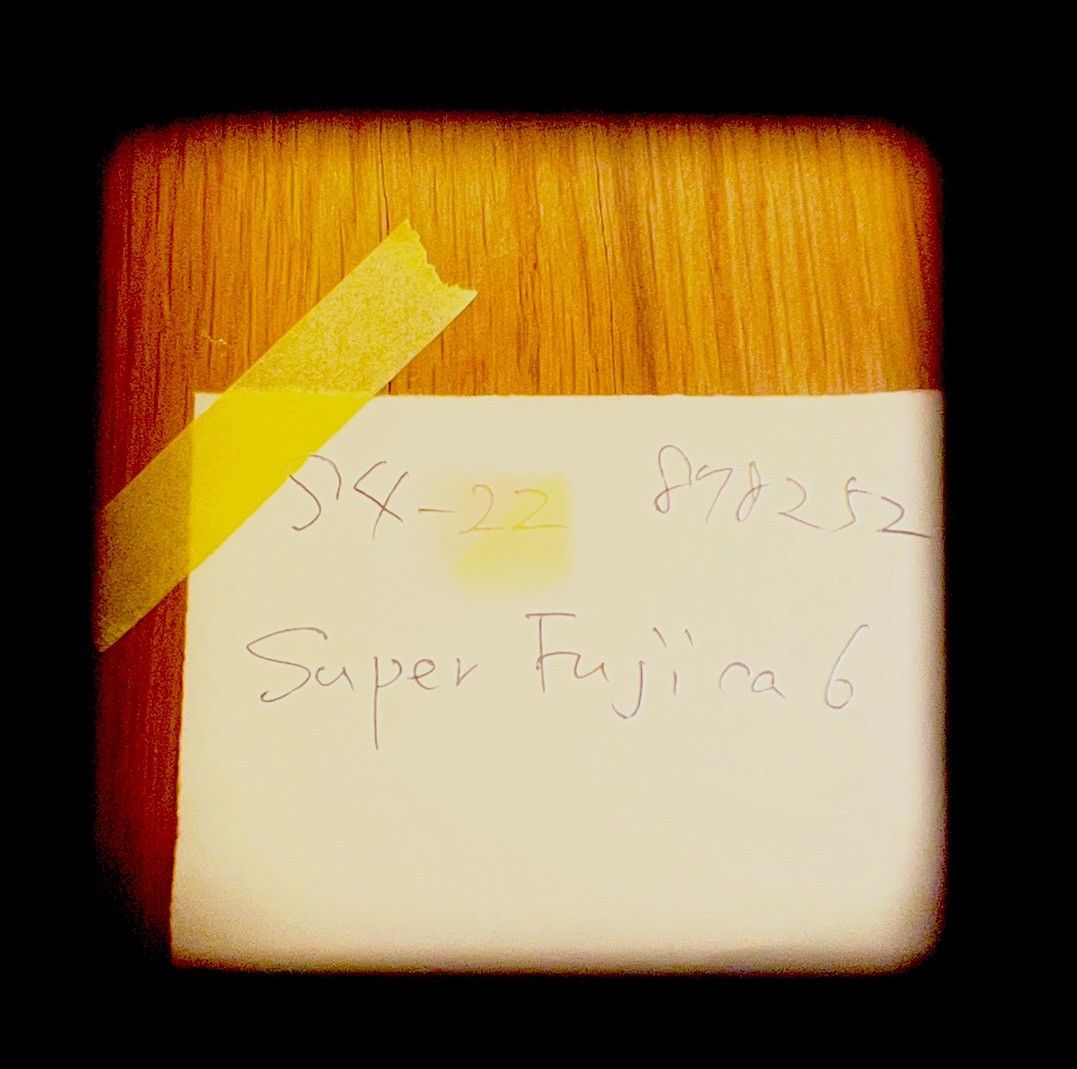 54-22 898252
Super Fujica 6